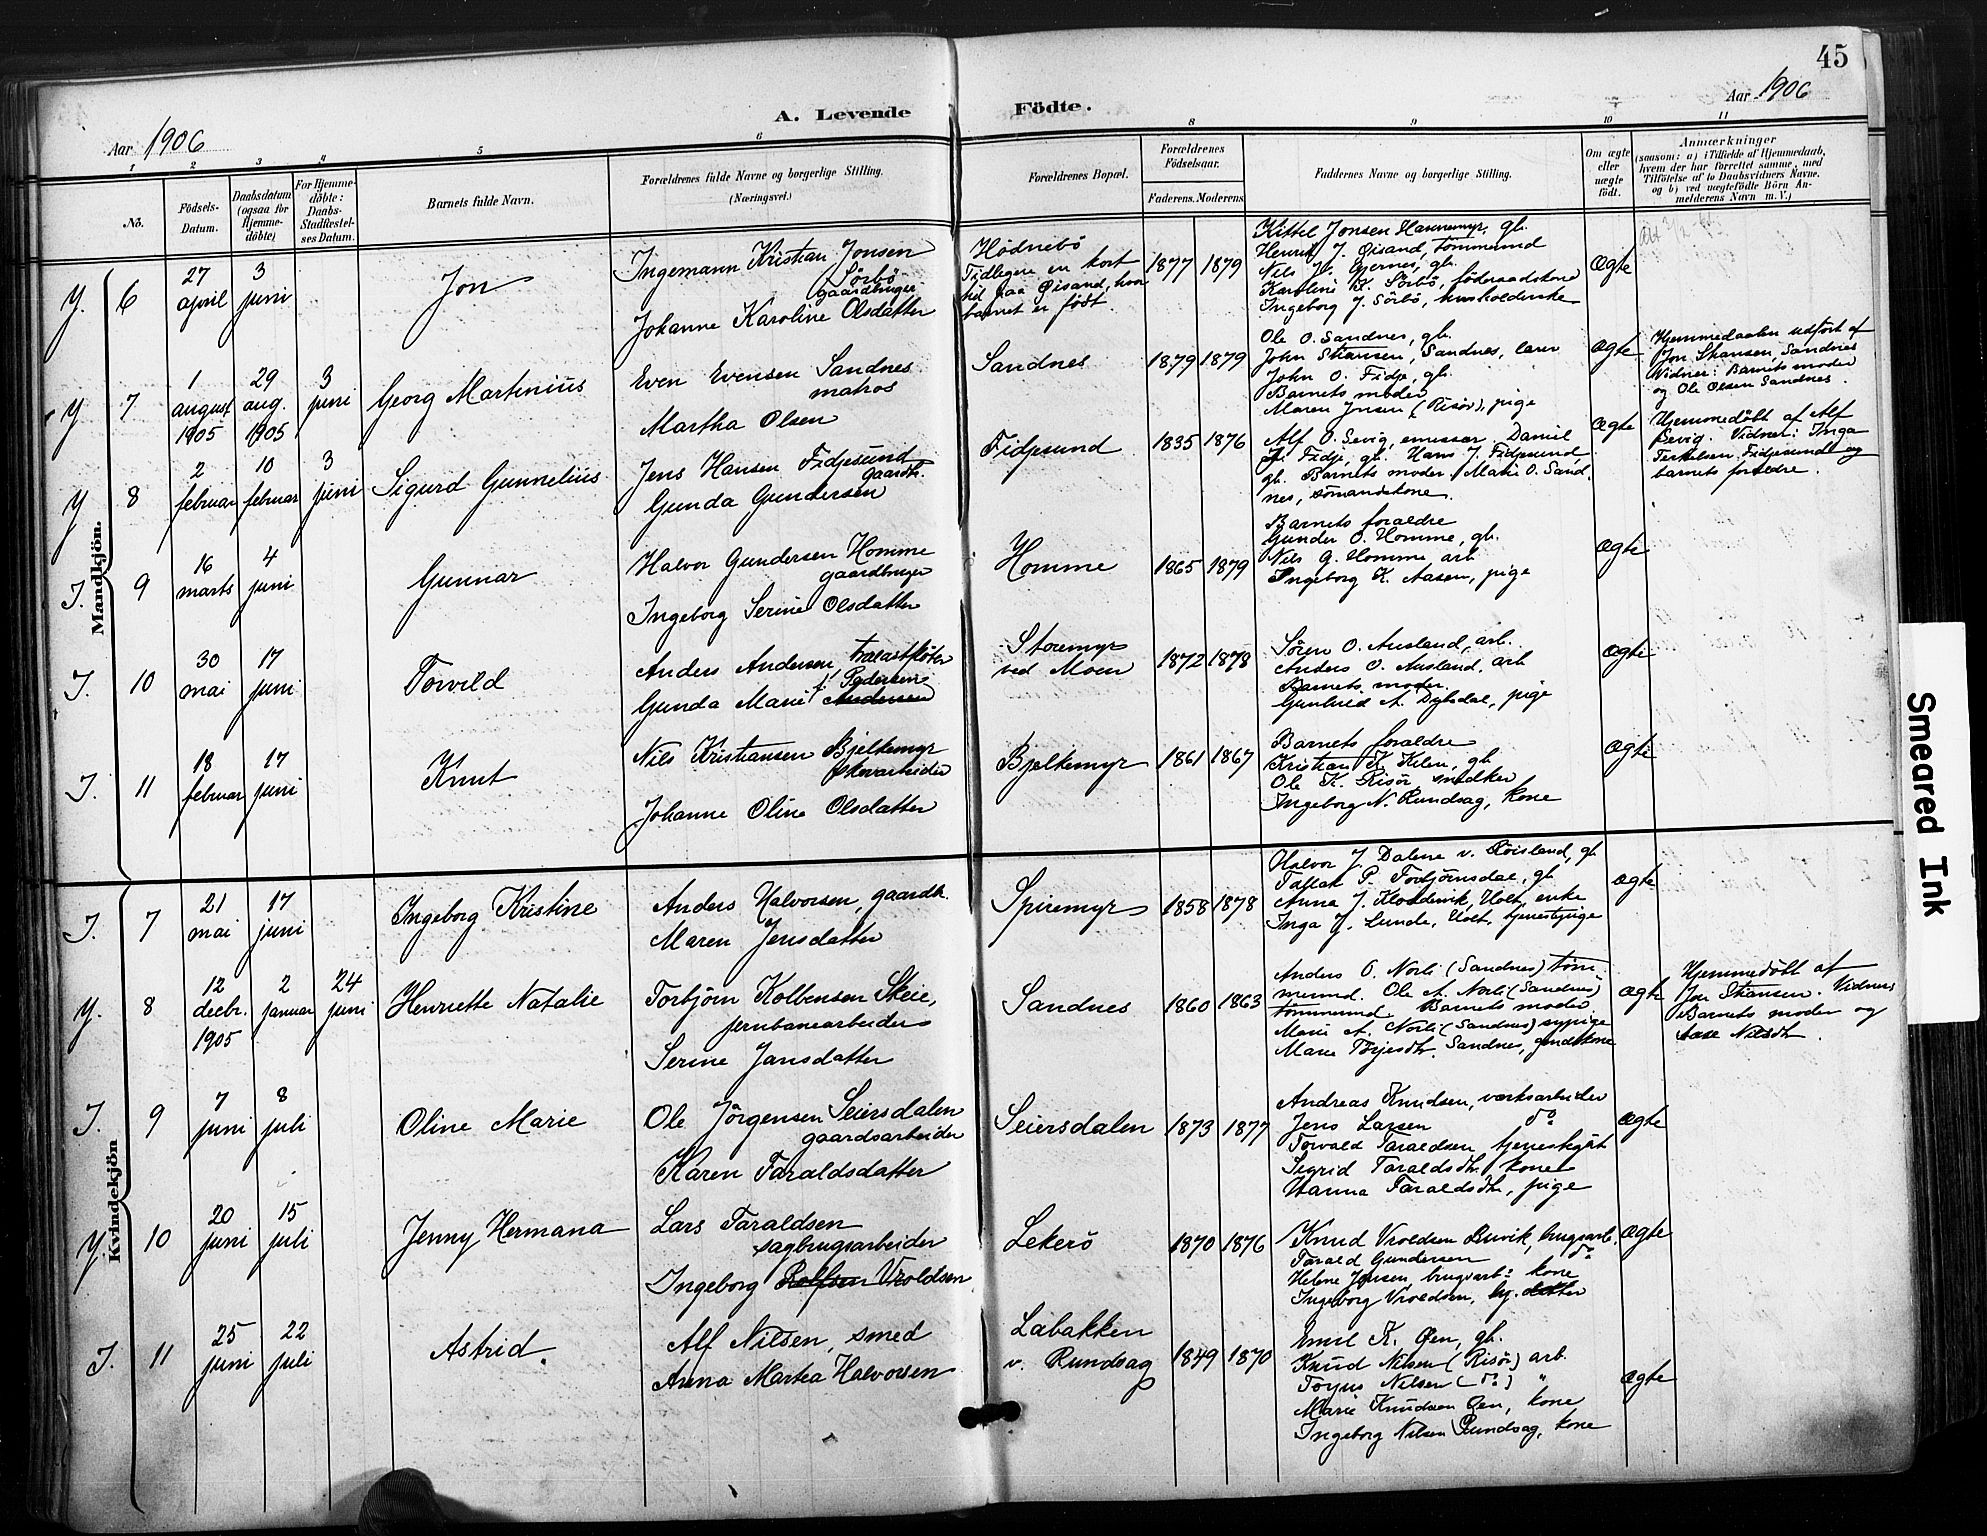 45
Aar 1906
A. Levende Födte.
Aar 1906
1 2 3 4 5 6 8 9 10 11
No.
Födsels-Datum.
Daabsdatum (ogsaa for Hjemme-döbte)
For Hjemme-döbte: Daabs-Stadfæstel-ses Datum.
Barnets fulde Navn.
Forældrenes fulde Navne og borgerlige Stilling. (Næringsvei.)
Forældrenes Bopæl.
Forældrenes Födselsaar.
Faderens. Moderens.
Faddernes Navne og borgerlige Stilling.
Om ægte eller uægte födt.
Anmærkninger
(saasom: a) i Tilfælde af Hjemmedaab,
hvem der har forrettet samme, med
Tilföielse af to Daabsvidners Navne,
og b) ved uægtefödte Börn An-
melderens Navn m. V.)
Mandkjön.
Y. 6
27 april
3 juni
Jon
Ingemann Kristian Jonsen
Sörbö
gaardbruger
Johanne Karoline Olsdatter
Hödnebö
Tidligere en kort
tid paa Øisand, hvor
barnet er født.
1877 1879
Kittel Jonsen Hannemyr, gb.
Henrik J. Øisand, tömmermd
Nils H. Gjernes, gb.
Karoline K. Sörbö, föderaadskone
Ingeborg J. Sörbö, husholderske
Ægte
Y 7
1 august 1905
29 aug. 1905
3 juni
Georg Martinius
Even Evensen Sandnes
matros
Martha Olsen
Sandnes
1879 1879
Ole O. Sandnes, gb.
John Stiansen, Sandnes, lærer
John O. Fidje, gb.
Barnets moder
Maren Jensen (Risør), pige
Ægte
Hjemmedaaben udført af
Jon Stiansen, Sandnes
Vidner: Barnets moder
og Ole Olsen Sandnes.
Y 8
2 februar
10 februar
3 juni
Sigurd Gunnelius
Jens Hansen Fidjesund
gaardb.
Gunda Gundersen
Fidjesund
1835 1876
Alf O. Sevig, emissær. Daniel
Fidje, gb. Hans J. Fidjesund
gb. Barnets moder. Marie O. Sand
nes, sömandskone.
Ægte
Hjemmedöbt af Alf
Sevig. Vidner: Inga
Terkelsen Fidjesund og
barnets forældre.
J. 9
16 marts
4 juni
Gunnar
Halvor Gundersen Homme
gaardbruger
Ingeborg Serine Olsdatter
Homme
1865 1879
Barnets forældre
Gunder O. Homme, gb.
Nils G. Homme arb
Ingeborg K. Aasen, pige
Ægte
J. 10
30 mai
17 juni
Torvild
Anders Andersen, trælastfløter
Pedersen
Gunda Marie Andersen
Storemyr
ved Moen
1872 1878
Sören O. Ausland, arb.
Anders O. Ausland, arb
Barnets moder.
Gunhild A. Dybdal, pige
Ægte
J. 11
18 februar
17 juni
Knut
Nils Kristiansen Bjelkemyr
skovarbeider
Johanne Oline Olsdatter
Bjelkemyr
1861 1867
Barnets forældre
Kristian K Kilen, gb
Ole K. Risør snedker
Ingeborg N. Rundsag, kone
Ægte
Kvindekjön
J. 7
21 mai
17 juni
Ingeborg Kristine
Anders Halvorsen, gaardb.
Maren Jensdatter
Spiremyr
1858 1878
Halvor J. Dalene v. Røisland, gb
Tallak P. Torbjörnsdal, gb
Anna J. Kloddevik, Holt, enke
Inga J. Lunde, Holt, tjenestpige
Ægte
Y. 8
12 decbr. 1905
2 januar
24 juni
Henriette Natalie
Torbjørn Kolbensen Skeie,
jernbanearbeider
Serine Jansdatter
Sandnes
1860 1863
Anders O. Norli (Sandnes) töm
mermd. Ole A. Norli (Sandnes)
tömmermd Barnets moder
Marie A. Norli (Sandnes) sypige
Maren Terjesdtr. Sandnes, gmdskone
Ægte
Hjemmedöbt af
Jon Stiansen. Vidner
Barnets moder og
Aase Nilsdtr.
J. 9
7 juni
8 juli
Oline Marie
Ole Jörgensen Seiersdalen
gaardsarbeider
Karen Taraldsdatter
Seiersdalen
1873 1877
Andreas Knudsen, værksarbeider
Jens Larsen do
Torvald Taraldsen, tjenestegut
Sigrid Taraldsdtr. kone
Hanna Taraldsdtr, pige
Ægte
Y. 10
20 juni
15 juli
Jenny Hermana
Lars Taraldsen
sagbrugsarbeider
Ingeborg Rolfsen Vroldsen
Lekerö
1870 1876
Knud Vroldsen Buvik, brugsarb.
Tarald Gundersen do
Helene Jensen, brugsarb.s kone
Ingeborg Vroldsen, hj. datter
Ægte
J. 11
25 juni
22 juli
Astrid
Alf Nilsen, smed
Anna Marthea Halvorsen
Labakken
v. Rundsag
1849 1870
Emil K. Øen, gb.
Knud Nilsen (Risör) arb.
Torjus Nilsen (do) "
Marie Knudsen Øen, kone
Ingeborg Nilsen Rundsag, kone
Ægte
Smeared Ink